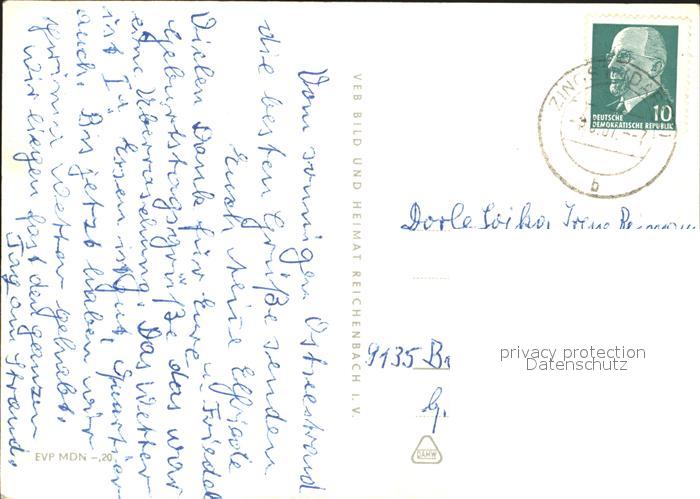 Vom sonnigen Ostseestrand
die besten Grüße senden
Euch seine Elfriede
u. Friedel
Vielen Dank für Eure
Geburtstagsgrüße das war
eine Überraschung. Das Wetter
ist Ia Essen ist gut, Quartier
auch. Bis jetzt haben wir
prima Wetter gehabt.
Wir liegen fast den ganzen
Tag am Strand.
VEB BILD UND HEIMAT REICHENBACH I. V.
EVP MDN -,20
10
DEUTSCHE
DEMOKRATISCHE REPUBLIK
ZINGST
b
Dorle Irene
9135
privacy protection
Datenschutz
DAHW